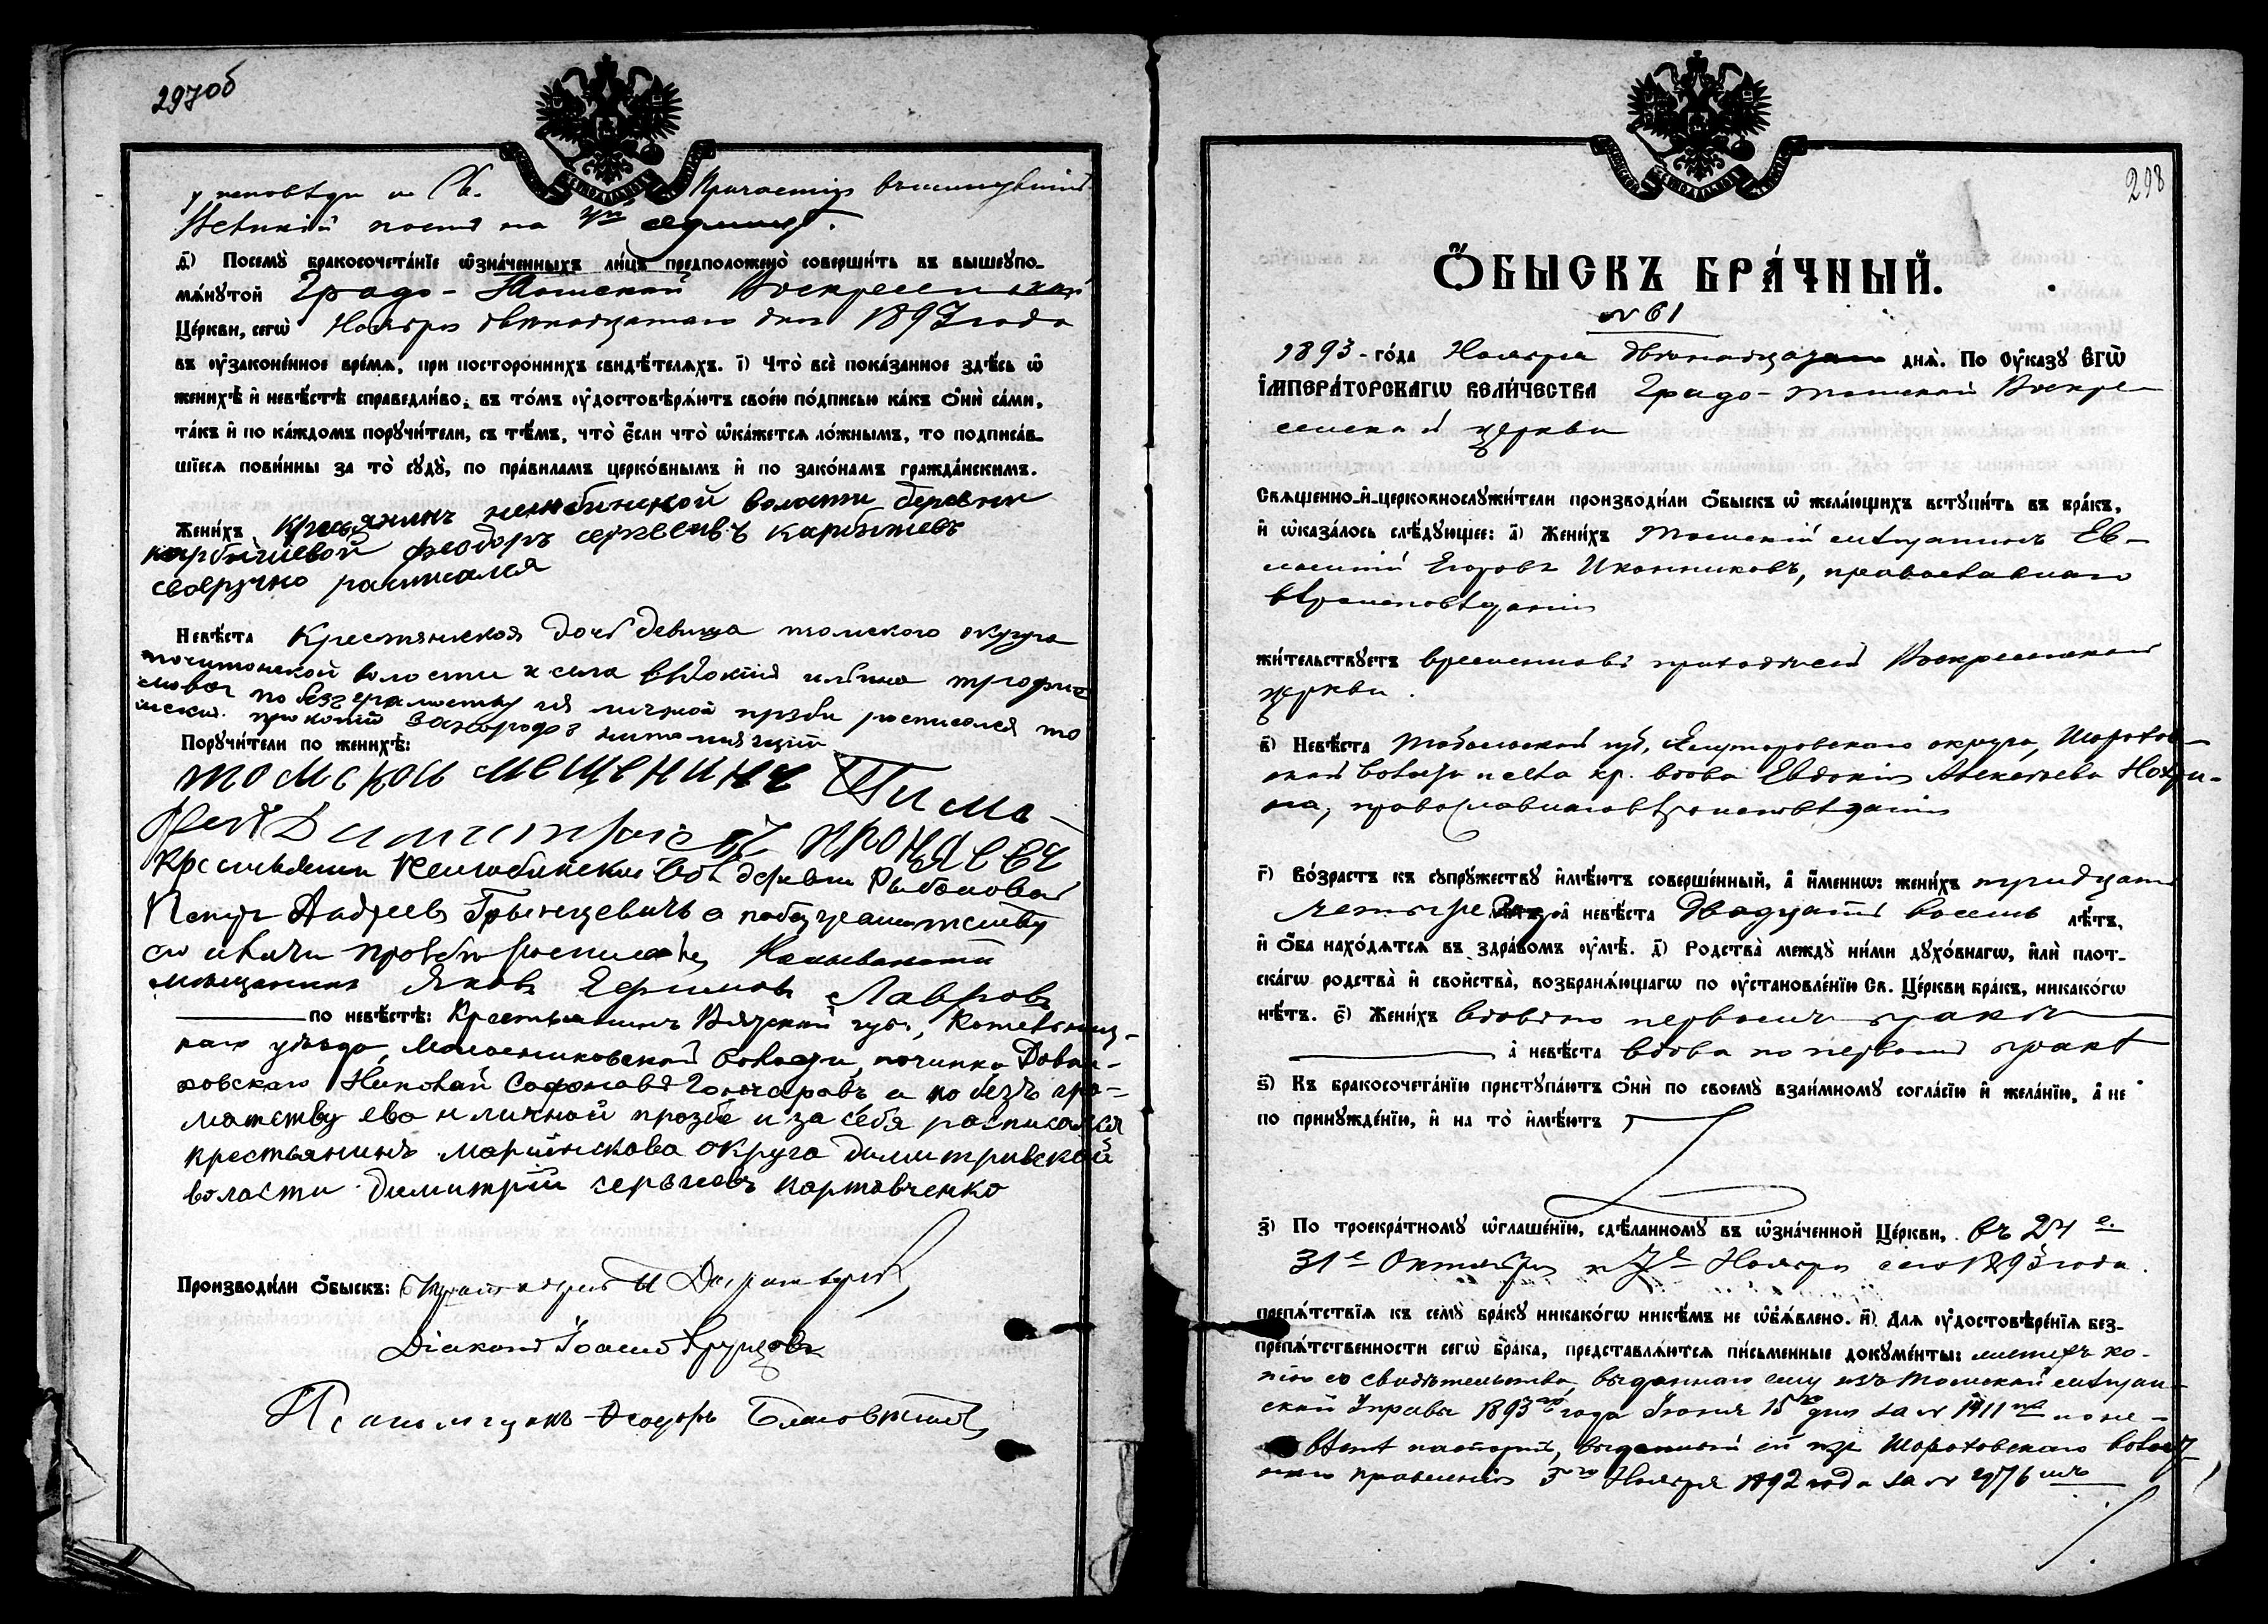 297об
у исповѣди и Св. Причастія въ минувшій
Великій постъ на седмицѣ.
д҃і) Посемꙋ̀ бракосочета́нїе ѡ҆зна́ченныхъ ли́цъ предположено̀ соверши́ть въ вышеꙋпо-
мѧ́нꙋтой Градо-Томской Воскресенской
Це́ркви, сегѡ̀ Ноября двѣнадцатаго дня 1893 года
въ ᲂу҆зако́ненное вре́мѧ, при посторо́ннихъ свидѣ́телѧхъ. і҃) Что̀ всѐ пока́занное здѣ́сь ѡ҆
женихѣ̀ и҆ невѣ́стѣ справедли́во, въ то́мъ ᲂу҆достовѣрѧ́ютъ свое́ю по́дписью ка́къ ѻ҆нѝ са́ми,
та́къ и҆ по ка́ждомъ порꙋчи́тели, съ тѣ́мъ, что̀ є҆́сли что̀ ѡ҆ка́жетсѧ ло́жнымъ, то подписа́в-
шїесѧ пови́нны за то̀ сꙋдꙋ̀, по пра́виламъ церко́внымъ и҆ по зако́намъ гражда́нскимъ.
Жени́хъ крестьянинъ нелюбинской волости деревни
карбышевой феодоръ сергѣевъ карбышевъ
своеручно росписался
Невѣ́ста Крестянская дочь девица томского округа
почитанской волости и села
по безграмотству ея личной прозби росписался то
Порꙋчи́тели по женихѣ̀:
томской мещенинъ Тимо-
фей Димитриевъ
Крестьянинъ Нелюбинской Вол деревни Рыбаловой
Петръ Андреевъ а по безграмотству
его и личной прозьбѣ росписался Колыванской
мещанинъ Яковъ Ефимовъ Лавровъ
по невѣ́стѣ: Крестьянинъ Вятской губ., Котельнич-
каго уѣзда, волости, починка
Николай Софоновъ Гончаровъ а по безъ гра-
мотству ево и личной прозбе и за себя росписался
крестьянинъ мариинскова округа димитриевской
воласти димитрий сергѣевъ портовченко
Производи́ли ѻ҆́быскъ:
Діаконъ Іоаннъ
Псаломщикъ Ѳеодоръ
298
Ѻ҆БЫСКЪ БРА́ЧНЫЙ.
№ 61
1893 - го́да Ноября двѣнадцатаго днѧ̀. По ᲂу҆ка́зꙋ Є҆ГѠ̀
І҆МПЕРА́ТОРСКАГѠ ВЕЛИ́ЧЕСТВА Градо-Томской Воскре-
сенской церкви
Свѧще́нно-и҆-церковнослꙋжи́тели производи́ли ѻ҆́быскъ ѡ҆ жела́ющихъ встꙋпи́ть въ бра́къ,
и҆ ѡ҆каза́лось слѣ́дꙋющее: а҃) Жени́хъ Томскій мѣщанинъ Ев-
Егоровъ Иконниковъ, православнаго
вѣроисповѣданія
жи́тельствꙋетъ временно въ приходѣ сей Воскресенской
церкви.
в҃) Невѣ́ста Тобольской губ., Ялуторовскаго округа, Шороховс-
кой волости и села кр. вдова Евдокія Алексѣева Нохри-
на, православнаго вѣроисповѣданія
г҃) Во́зрастъ къ сꙋпрꙋ́жествꙋ и҆мѣ́ютъ соверше́нный, а҆ и҆́менно: жени́хъ тридцати
четыре лѣ́тъ, а҆ невѣ́ста двадцати восемь лѣ́тъ,
и҆ ѻ҆́ба нахо́дѧтсѧ въ здра́вомъ ᲂу҆мѣ̀. д҃) Родства̀ междꙋ̀ ни́ми дꙋхо́внагѡ, и҆лѝ плот-
ска́гѡ родства̀ и҆ сво́йства̀, возбранѧ́ющагѡ по ᲂу҆становле́нїю Св. Це́ркви бра́къ, никако́гѡ
нѣ́тъ. є҃) Жени́хъ вдовъ по первомъ бракѣ
а҆ невѣ́ста вдова по первомъ бракѣ
ѕ҃) Къ бракосочета́нїю пристꙋпа́ютъ ѻ҆нѝ по своемꙋ̀ взаи́мномꙋ согла́сїю и҆ жела́нїю, а҆ не
по принꙋжде́нїю, и҆ на то̀ и҆мѣ́ютъ
з҃) По троекра́тномꙋ ѡ҆глаше́нїю, сдѣ́ланномꙋ въ ѡ҆зна́ченной Це́ркви, въ 24 е.
31 е Октября и 7 е Ноября сего 1893 года.
препѧ́тствїѧ къ семꙋ̀ бра́кꙋ никако́гѡ никѣ́мъ не ѡ҆б̾ѧ́влено. и҃) Для ᲂу҆достовѣре́нїѧ без-
препѧ́тственности сегѡ̀ бра́ка, представлѧ́ютсѧ пи́сьменные докꙋме́нты: женихъ ко-
пію со свидѣтельства, выданнаго ему изъ Томской мѣщан-
ской Управы 1893 го года Іюня 15 го дня за № 1411 и не-
вѣста паспортъ, выданный ей изъ Шороховскаго волост-
наго правленія 3 го Ноября 1892 года за № 2976 мъ